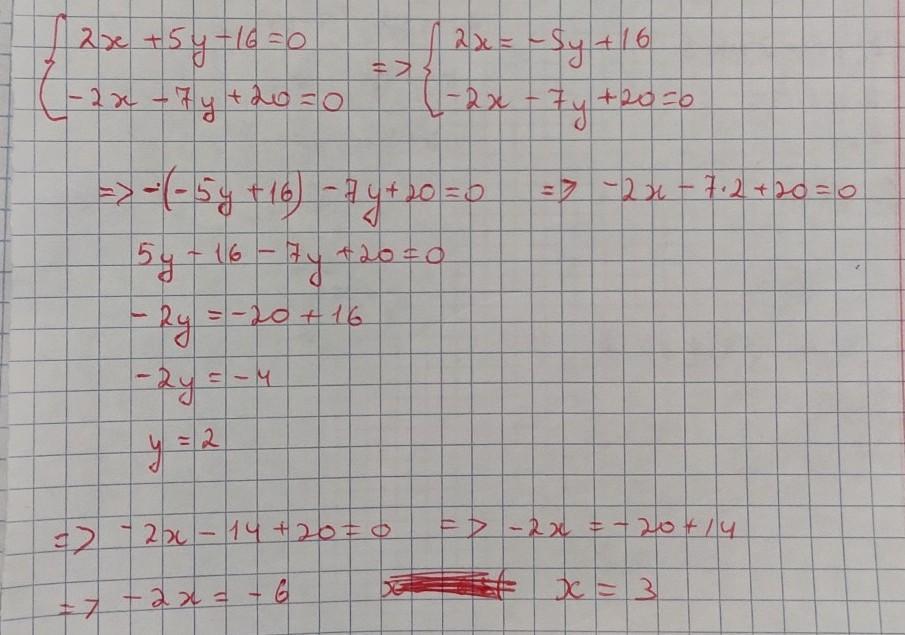 2x + 5y - 16 = 0 => 2x = -5y + 16
-2x - 7y + 20 = 0 -2x - 7y + 20 = 0
=> -(-5y + 16) - 7y + 20 = 0 => -2x - 7·2 + 20 = 0
5y - 16 - 7y + 20 = 0
-2y = -20 + 16
-2y = -4
y = 2
=> -2x - 14 + 20 = 0 => -2x = -20 + 14
=> -2x = -6 x = 3